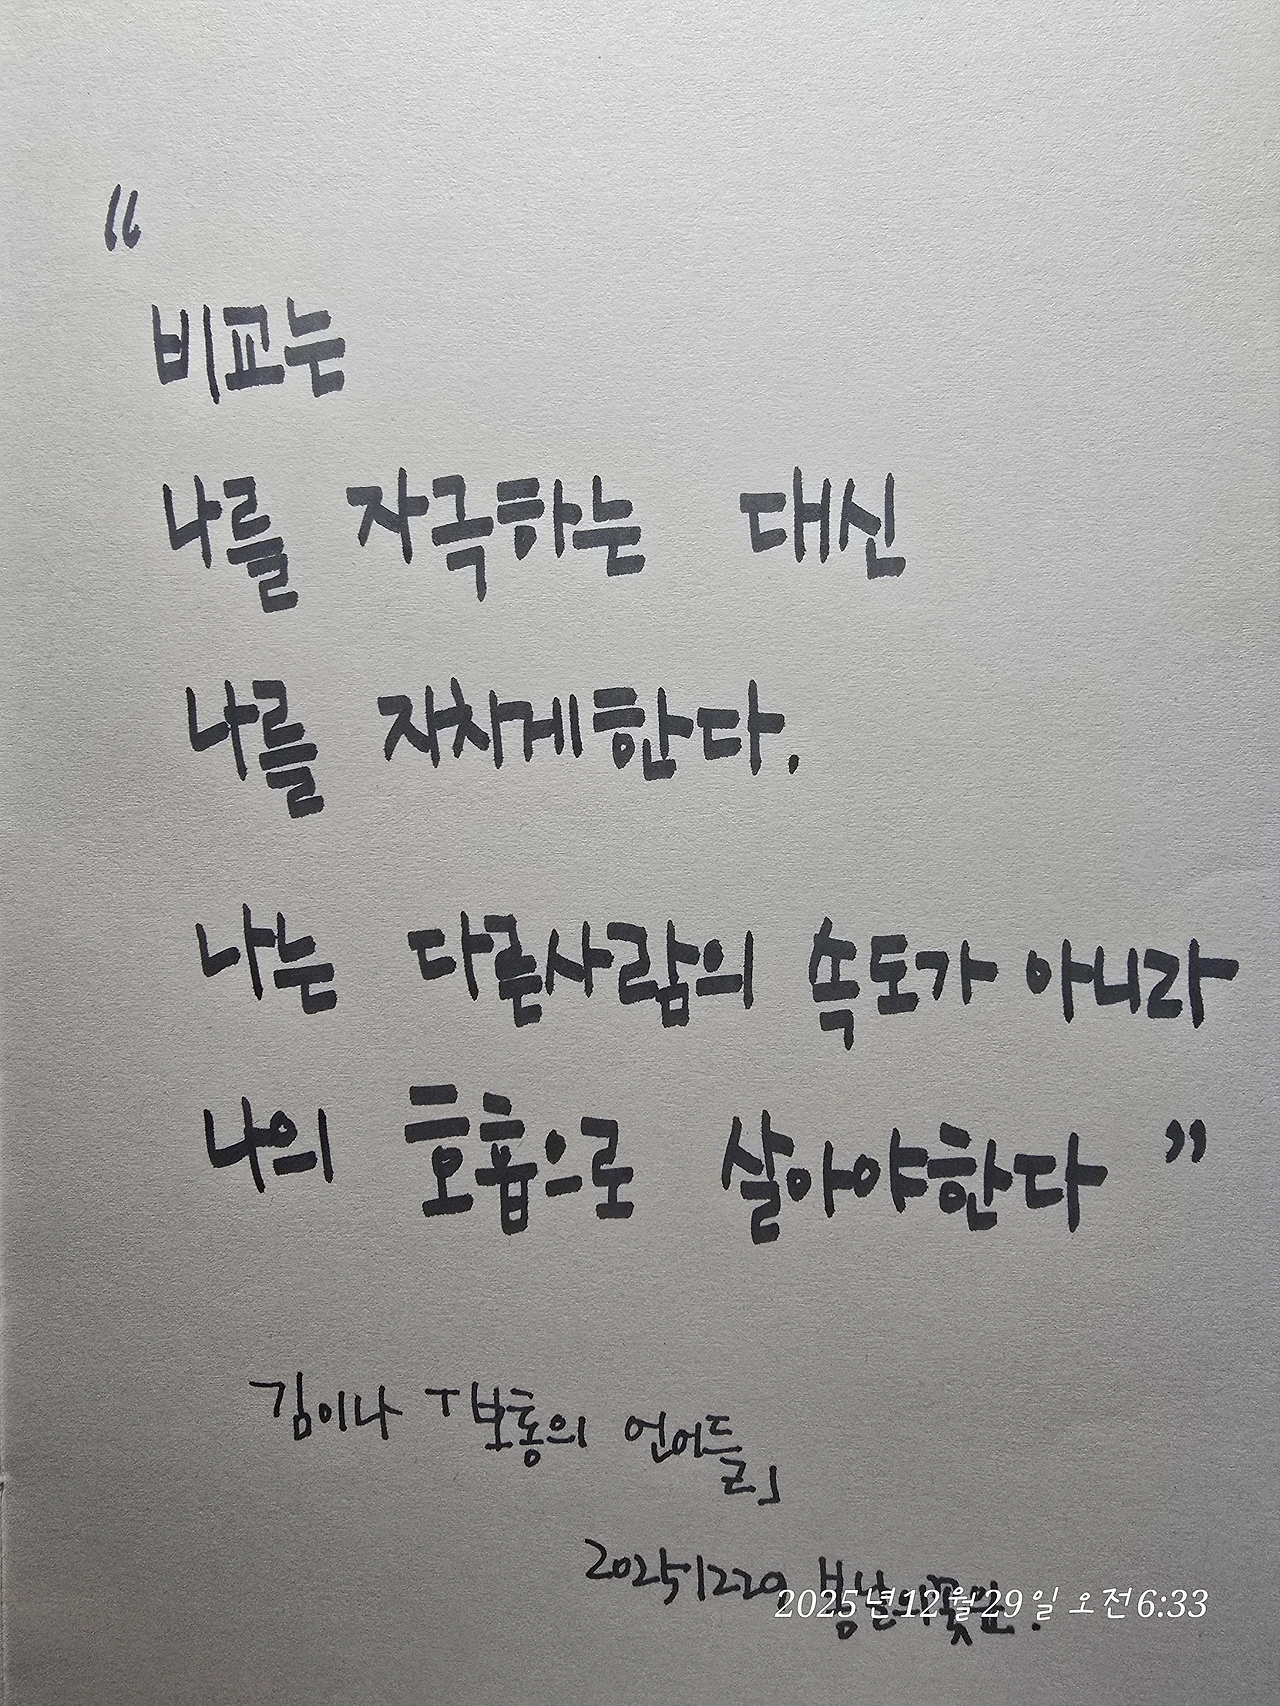 “
비교는
나를 자극하는 대신
나를 지치게한다.
나는 다른사람의 속도가 아니라
나의 호흡으로 살아야한다 ”
김이나 「보통의 언어들」
20251229 봄날의꽃잎.
2025년12월29일 오전6:33